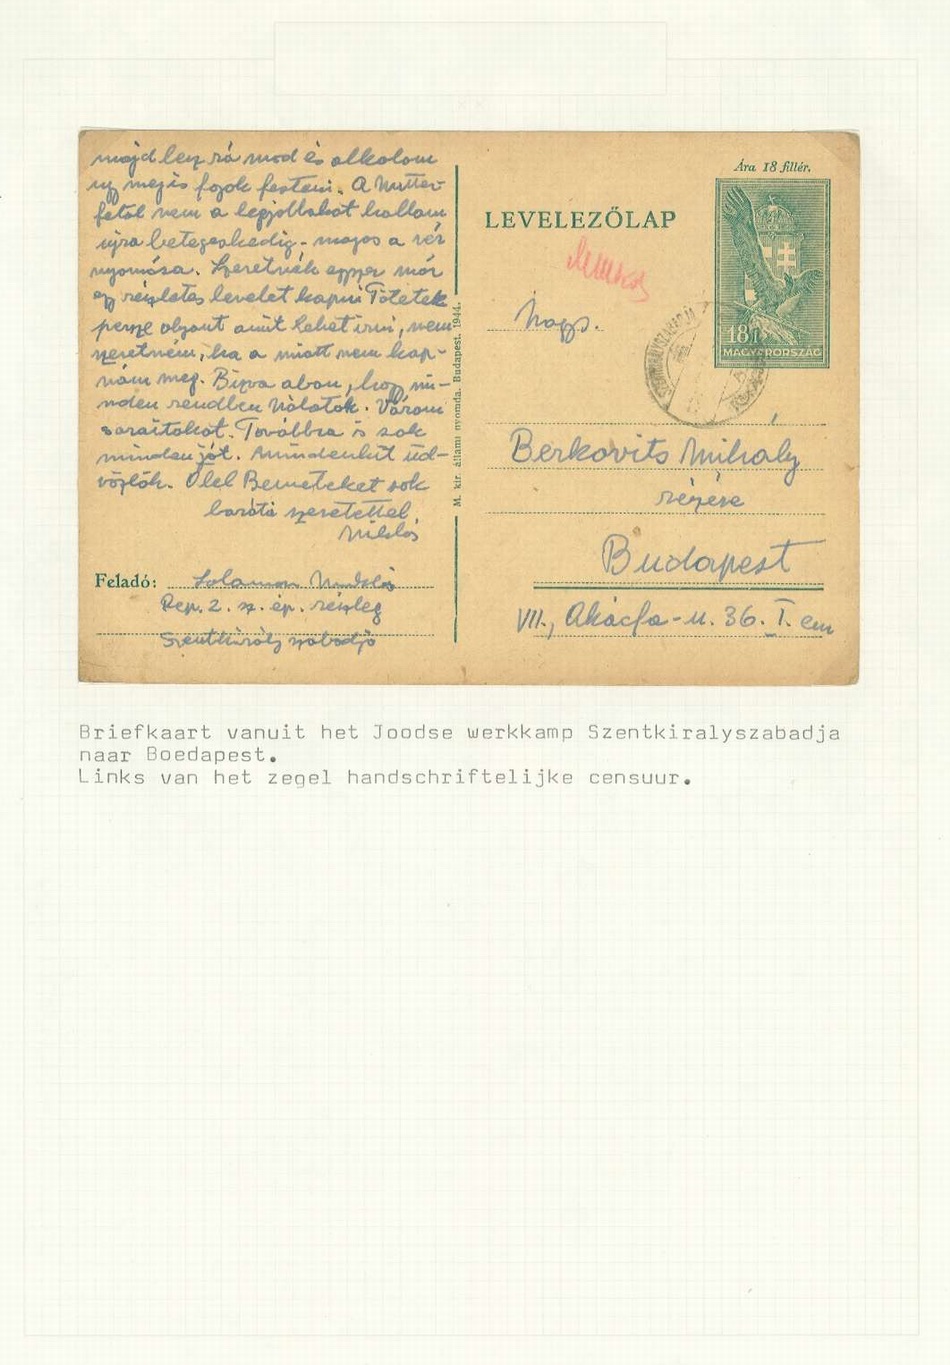 majd lesz rá mod és alkalom
úgy megis fogok festeni. A Mutter-
féról nem a legjobbakat hallom
újra betegeskedig - magas a vér
nyomása. Szeretnék egyszer már
egy részletes levelet kapni Tőletek
persze olyant amit lehet irni, nem
szeretném, ha a miatt nem kap-
nám meg. Bizva abban, hogy mi-
nden rendben Nálatok. Várom
soraitokat. Továbbra is sok
minden jót. Mindenkit üd-
vözlök. Ölel Benneteket sok
baráti szeretettel
Miklós
Feladó: Salamon Miklós
Rep. 2. sz. ép. részleg
Szentkirályszabadja
M. kir. állami nyomda. Budapest. 1944.
Ára 18 fillér.
LEVELEZŐLAP
18f
MAGYARORSZÁG
SZENTKIRÁLYSZABADJA
Nagys.
Berkovits Mihály
részére
Budapest
VII., Akácfa-u. 36. I. em
Briefkaart vanuit het Joodse werkkamp Szentkiralyszabadja
naar Boedapest.
Links van het zegel handschriftelijke censuur.